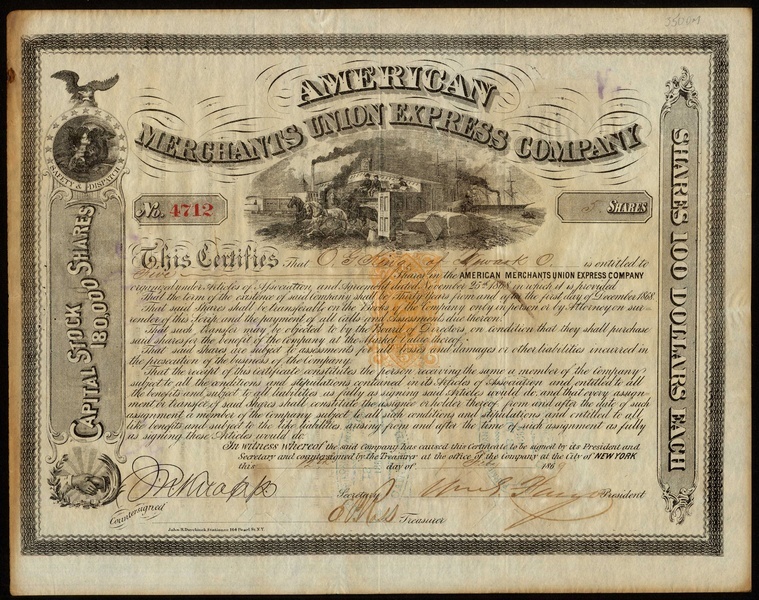 AMERICAN
MERCHANTS UNION EXPRESS COMPANY
SAFETY & DISPATCH
No. 4712
5 SHARES
CAPITAL STOCK
180,000 SHARES
SHARES 100 DOLLARS EACH
This Certifies That O. of Newark O. is entitled to
Five Shares in the AMERICAN MERCHANTS UNION EXPRESS COMPANY
organized under Articles of Association and Agreement dated November 25th 1868 in which it is provided
That the term of the existence of said company shall be Thirty Years from and after the first day of December 1868.
That said Shares shall be transferable on the Books of the Company only in person or by Attorney on sur-
render of this Scrip and the payment of all calls and Assessments due thereon.
That such transfer may be objected to by the Board of Directors, on condition that they shall purchase
said shares for the benefit of the company at the Market Value thereof.
That said shares are subject to assessments for all losses and damages or other liabilities incurred in
the prosecution of the business of the Company.
That the receipt of this certificate constitutes the person receiving the same a member of the Company
subject to all the conditions and stipulations contained in its Articles of Association and entitled to all
the benefits and subject to all liabilities as fully as signing said Articles would do, and that every assign-
ment or transfer of said Shares shall constitute the assignee or holder thereof from and after the date of such
assignment a member of the Company subject to all such conditions and stipulations and entitled to all
like benefits and subject to the like liabilities arising from and after the time of such assignment as fully
as signing those Articles would do.
In witness whereof the said Company has caused this Certificate to be signed by its President and
Secretary and countersigned by the Treasurer at the office of the Company at the City of NEW YORK
this day of 186
Secretary Wm G. Fargo President
Countersigned Treasurer